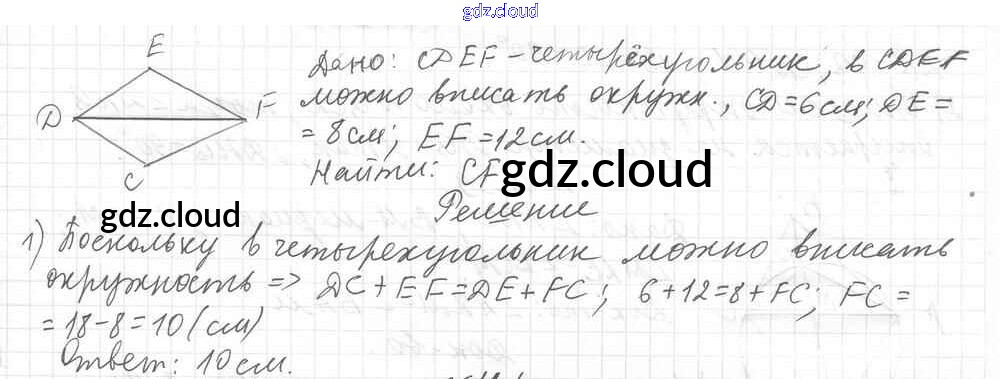 gdz.cloud
E
D
F
C
Дано: CDEF - четырёхугольник, в CDEF
можно вписать окружн., CD = 6 см; DE =
= 8 см; EF = 12 см.
Найти: CF
gdz.cloud
gdz.cloud
Решение
1) Поскольку в четырехугольник можно вписать
окружность => DC + EF = DE + FC; 6 + 12 = 8 + FC; FC =
= 18 - 8 = 10 (см)
Ответ: 10 см.